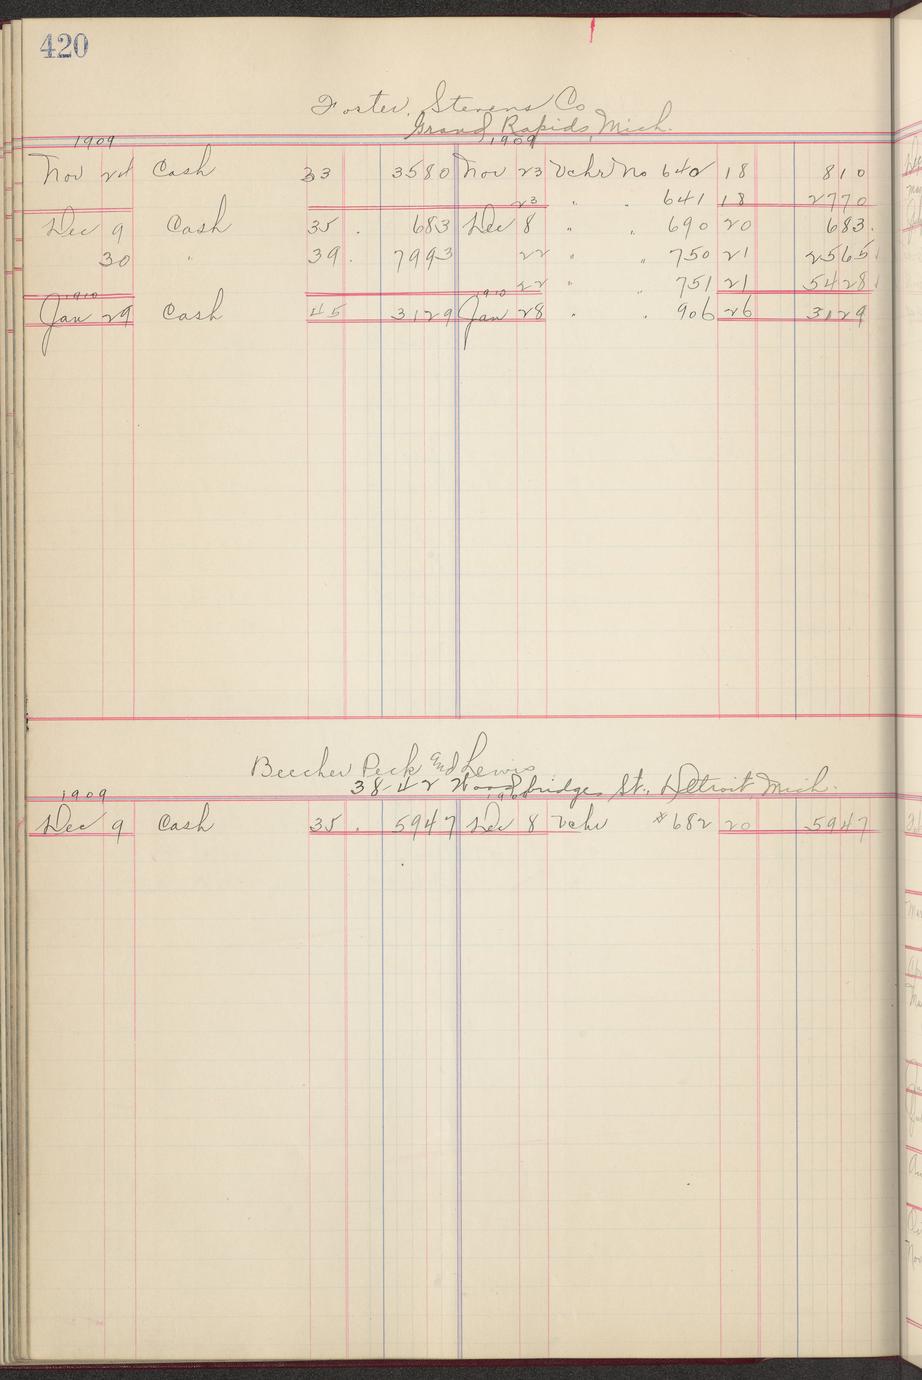 420
Foster, Stevens Co
Grand Rapids, Mich.
1909 1909
Nov 24 Cash 33 3580 Nov 23 Vchr No 640 18 810
23 " " 641 18 2770
Dec 9 Cash 35 . 683 Dec 8 " " 690 20 683.
30 " 39 . 7993 22 " " 750 21 2565
1910 1910 22 " " 751 21 5428
Jan 29 Cash 45 3129 Jan 28 " " 906 26 3129
Beecher Peck and Lewis
38-42 Woodbridge St., Detroit, Mich.
1909 1909
Dec 9 Cash 35 . 5947 Dec 8 Vchr # 682 20 5947